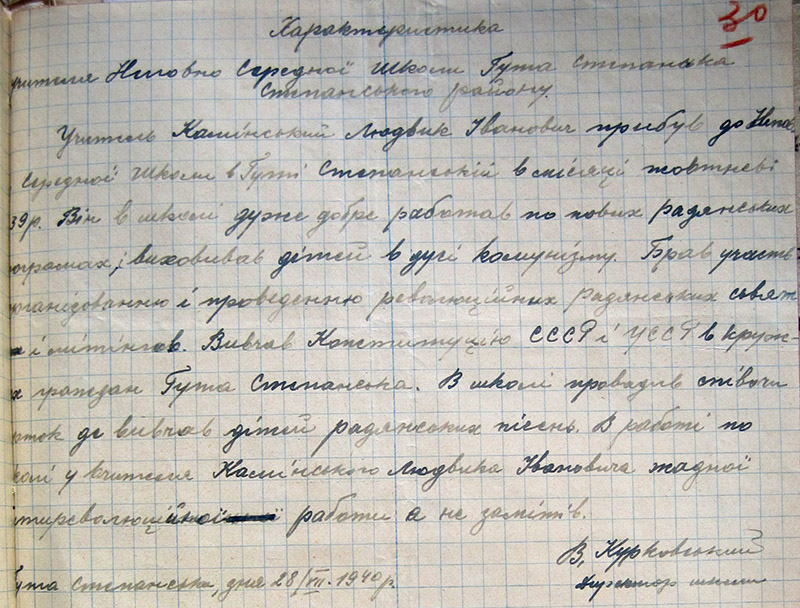 30
Характеристика
учителя Неповно Середної Школи Гута Степанська
Степанського району.
Учитель Камінський Людвик Іванович прибув до Непов
Середної Школи в Гуті Степанській в місяці жовтневі
39р. Він в школі дуже добре работав по нових радянських
ограмах, і виховивав дітей в дусі комунізму. Брав участь
рганізованню і проведенню революційних радянських сьвят
і мітінгов. Вивчав Конституцію СССР і УССР в круж-
х граждан Гута Степанська. В школі провадив співочи
рток де вивчав дітей радянських пісень. В работі по
колі у вчителя Камінського Людвика Івановича жадної
тиреволюційної работи а не замітів.
В. Курковський
Директор школи
Гута Степанська, дня 28/VII. 1940р.